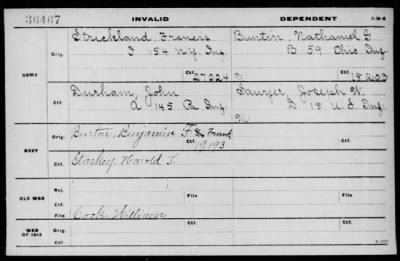 36467 INVALID DEPENDENT
Strickland Francis Buntin, Nathaniel G
Orig. I 154 N.Y. Inf. B 59 Ohio Inf
Ctf. 27224 Ctf. 18203
ARMY
Durham, John Sawyer Joseph W.
Orig. A 145 Pa Inf. D 18 U.S. Inf.
Ctf. Ctf.
Burton, Benjamin F. Frank
Orig. Ctf. 19193
NAVY
Starkey, Harold S.
Orig. Ctf.
Rej.
Ctf. File File
OLD WAR
Cook William
File Ctf. Ctf.
WAR OF 1812
Ctf. Ctf.